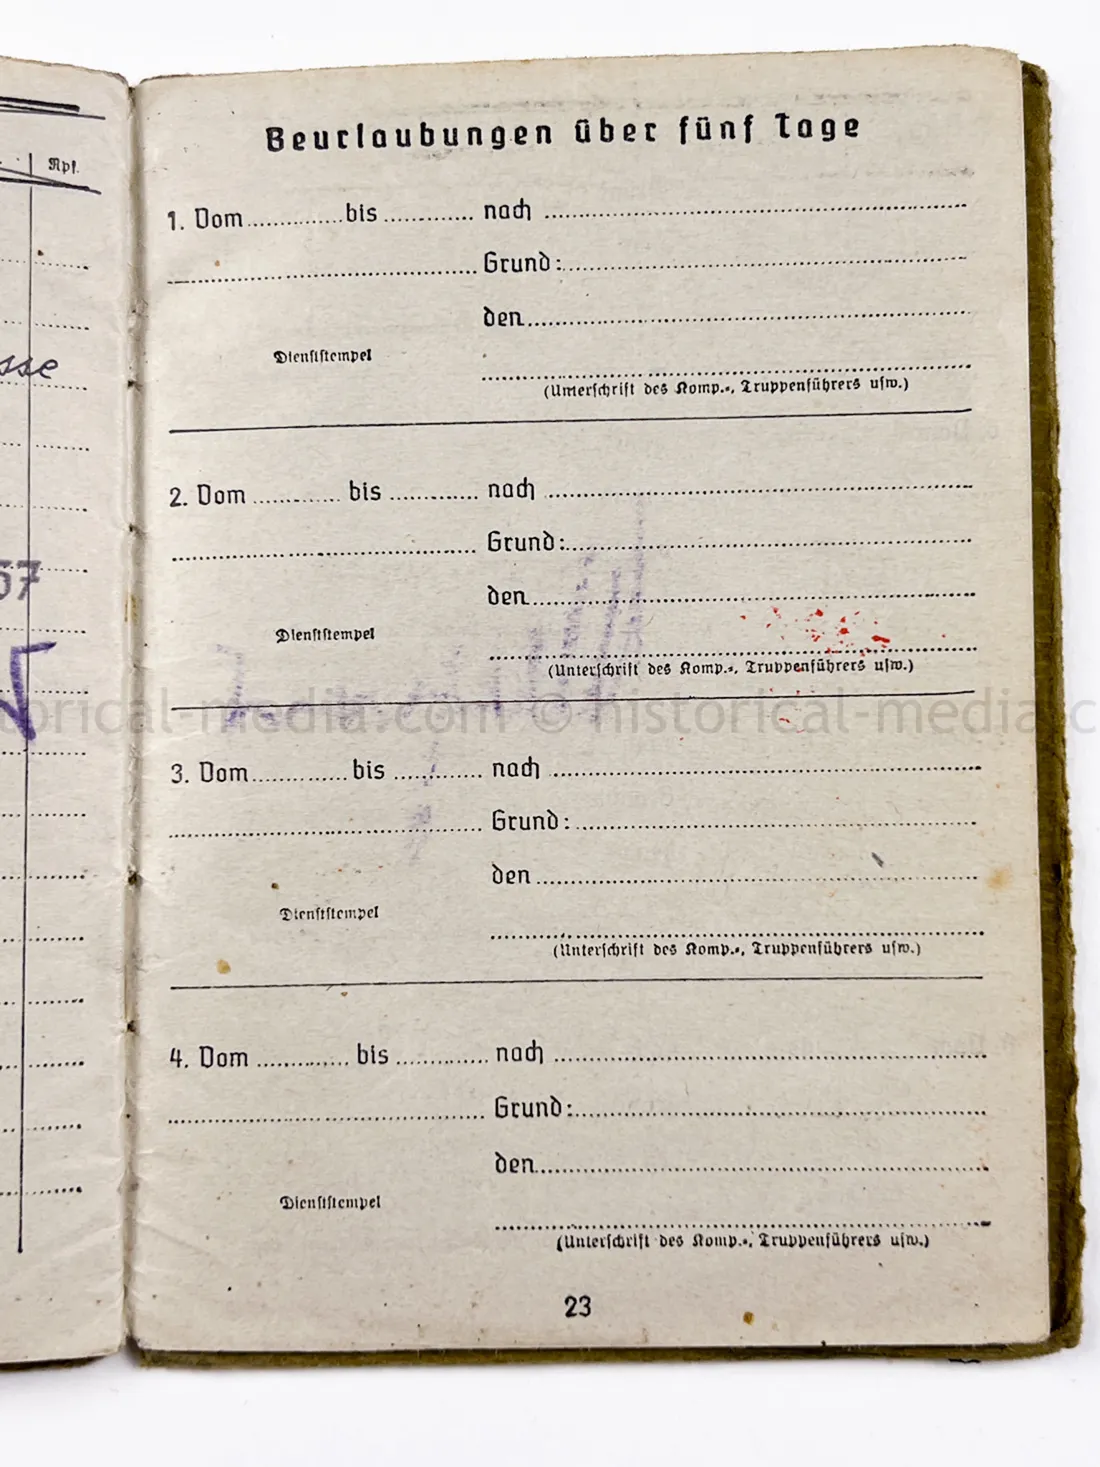 Rpf.
sse
57
Beurlaubungen über fünf Tage
1. Vom ............ bis ............ nach ............
............ Grund: ............
den ............
Dienststempel
(Unterschrift des Komp.=, Truppenführers usw.)
2. Vom ............ bis ............ nach ............
............ Grund: ............
den ............
Dienststempel
(Unterschrift des Komp.=, Truppenführers usw.)
historical-media.com © historical-media.c
3. Vom ............ bis ............ nach ............
............ Grund: ............
den ............
Dienststempel
(Unterschrift des Komp.=, Truppenführers usw.)
4. Vom ............ bis ............ nach ............
............ Grund: ............
den ............
Dienststempel
(Unterschrift des Komp.=, Truppenführers usw.)
23